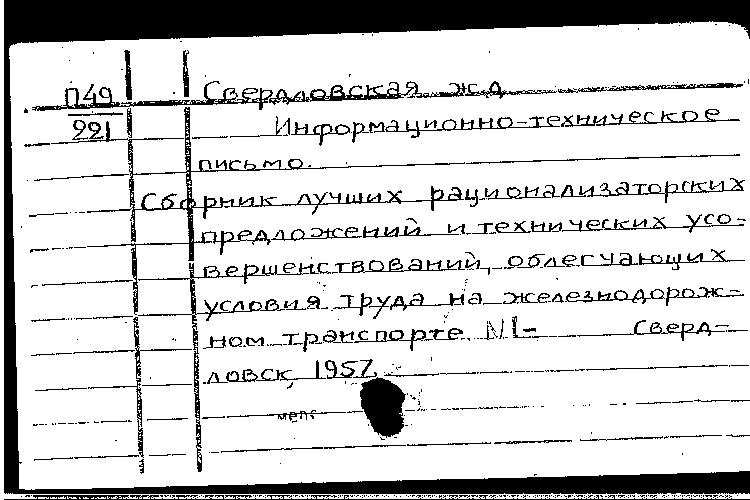 П49
221
Свердловская ж.д
Информационно-техническое
письмо.
Сборник лучших рационализаторских
предложений и технических усо=
вершенствований, облегчающих
условия труда на железнодорож=
ном транспорте. N1- Сверд-
ловск, 1957.